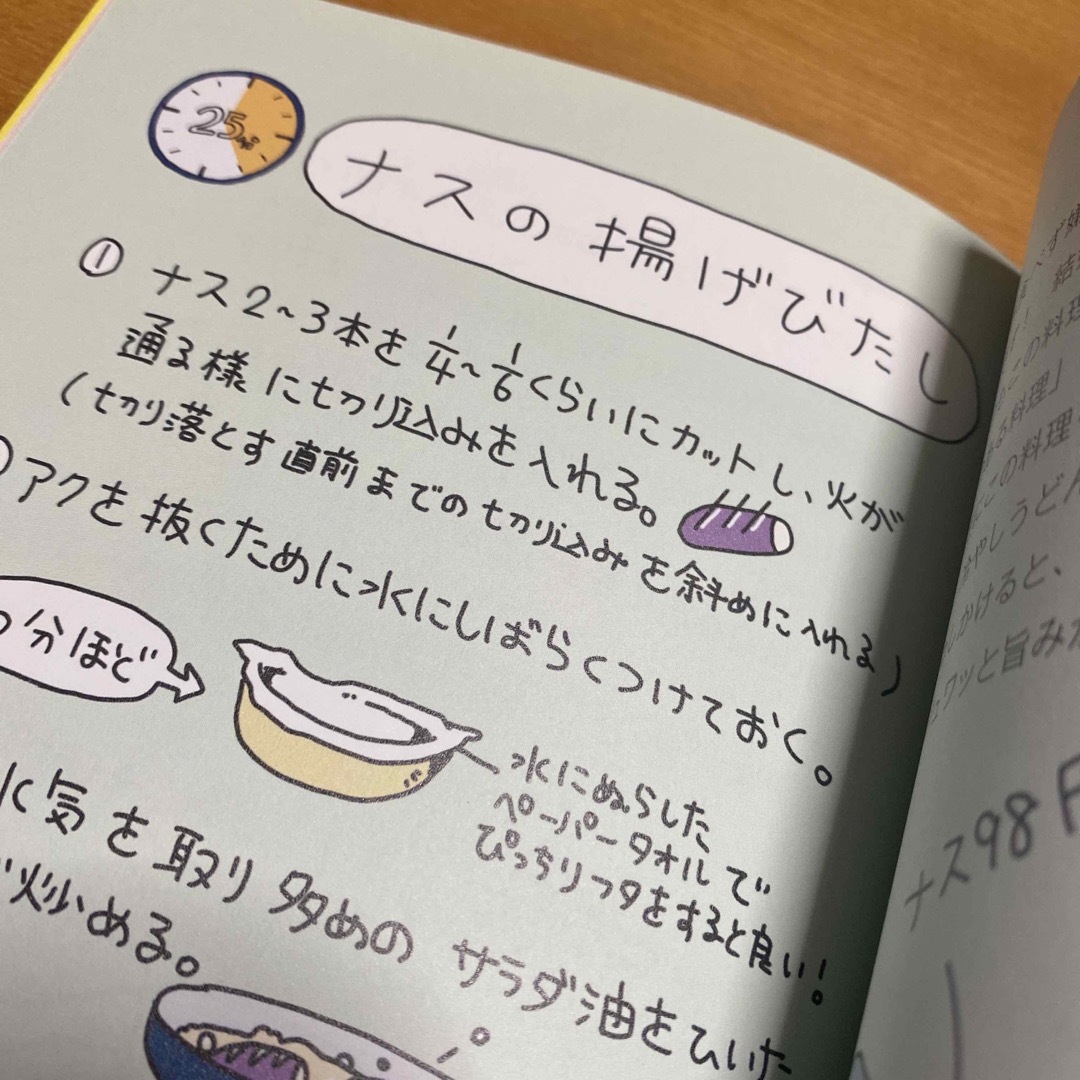 25分
ナスの揚げびたし
① ナス2~3本を1/4~1/6くらいにカットし、火が
通る様に切り込みを入れる。
(切り落とす直前までの切り込みを斜めに入れる)
アクを抜くために水にしばらくつけておく。
分ほど
水にぬらした
ペーパータオルで
ぴっちりフタをすると良い!
水気を取り多めのサラダ油をひいた
炒める。
結
の料理
料理」
この料理
うどん
かけると、
ワッと旨みが
ナス98